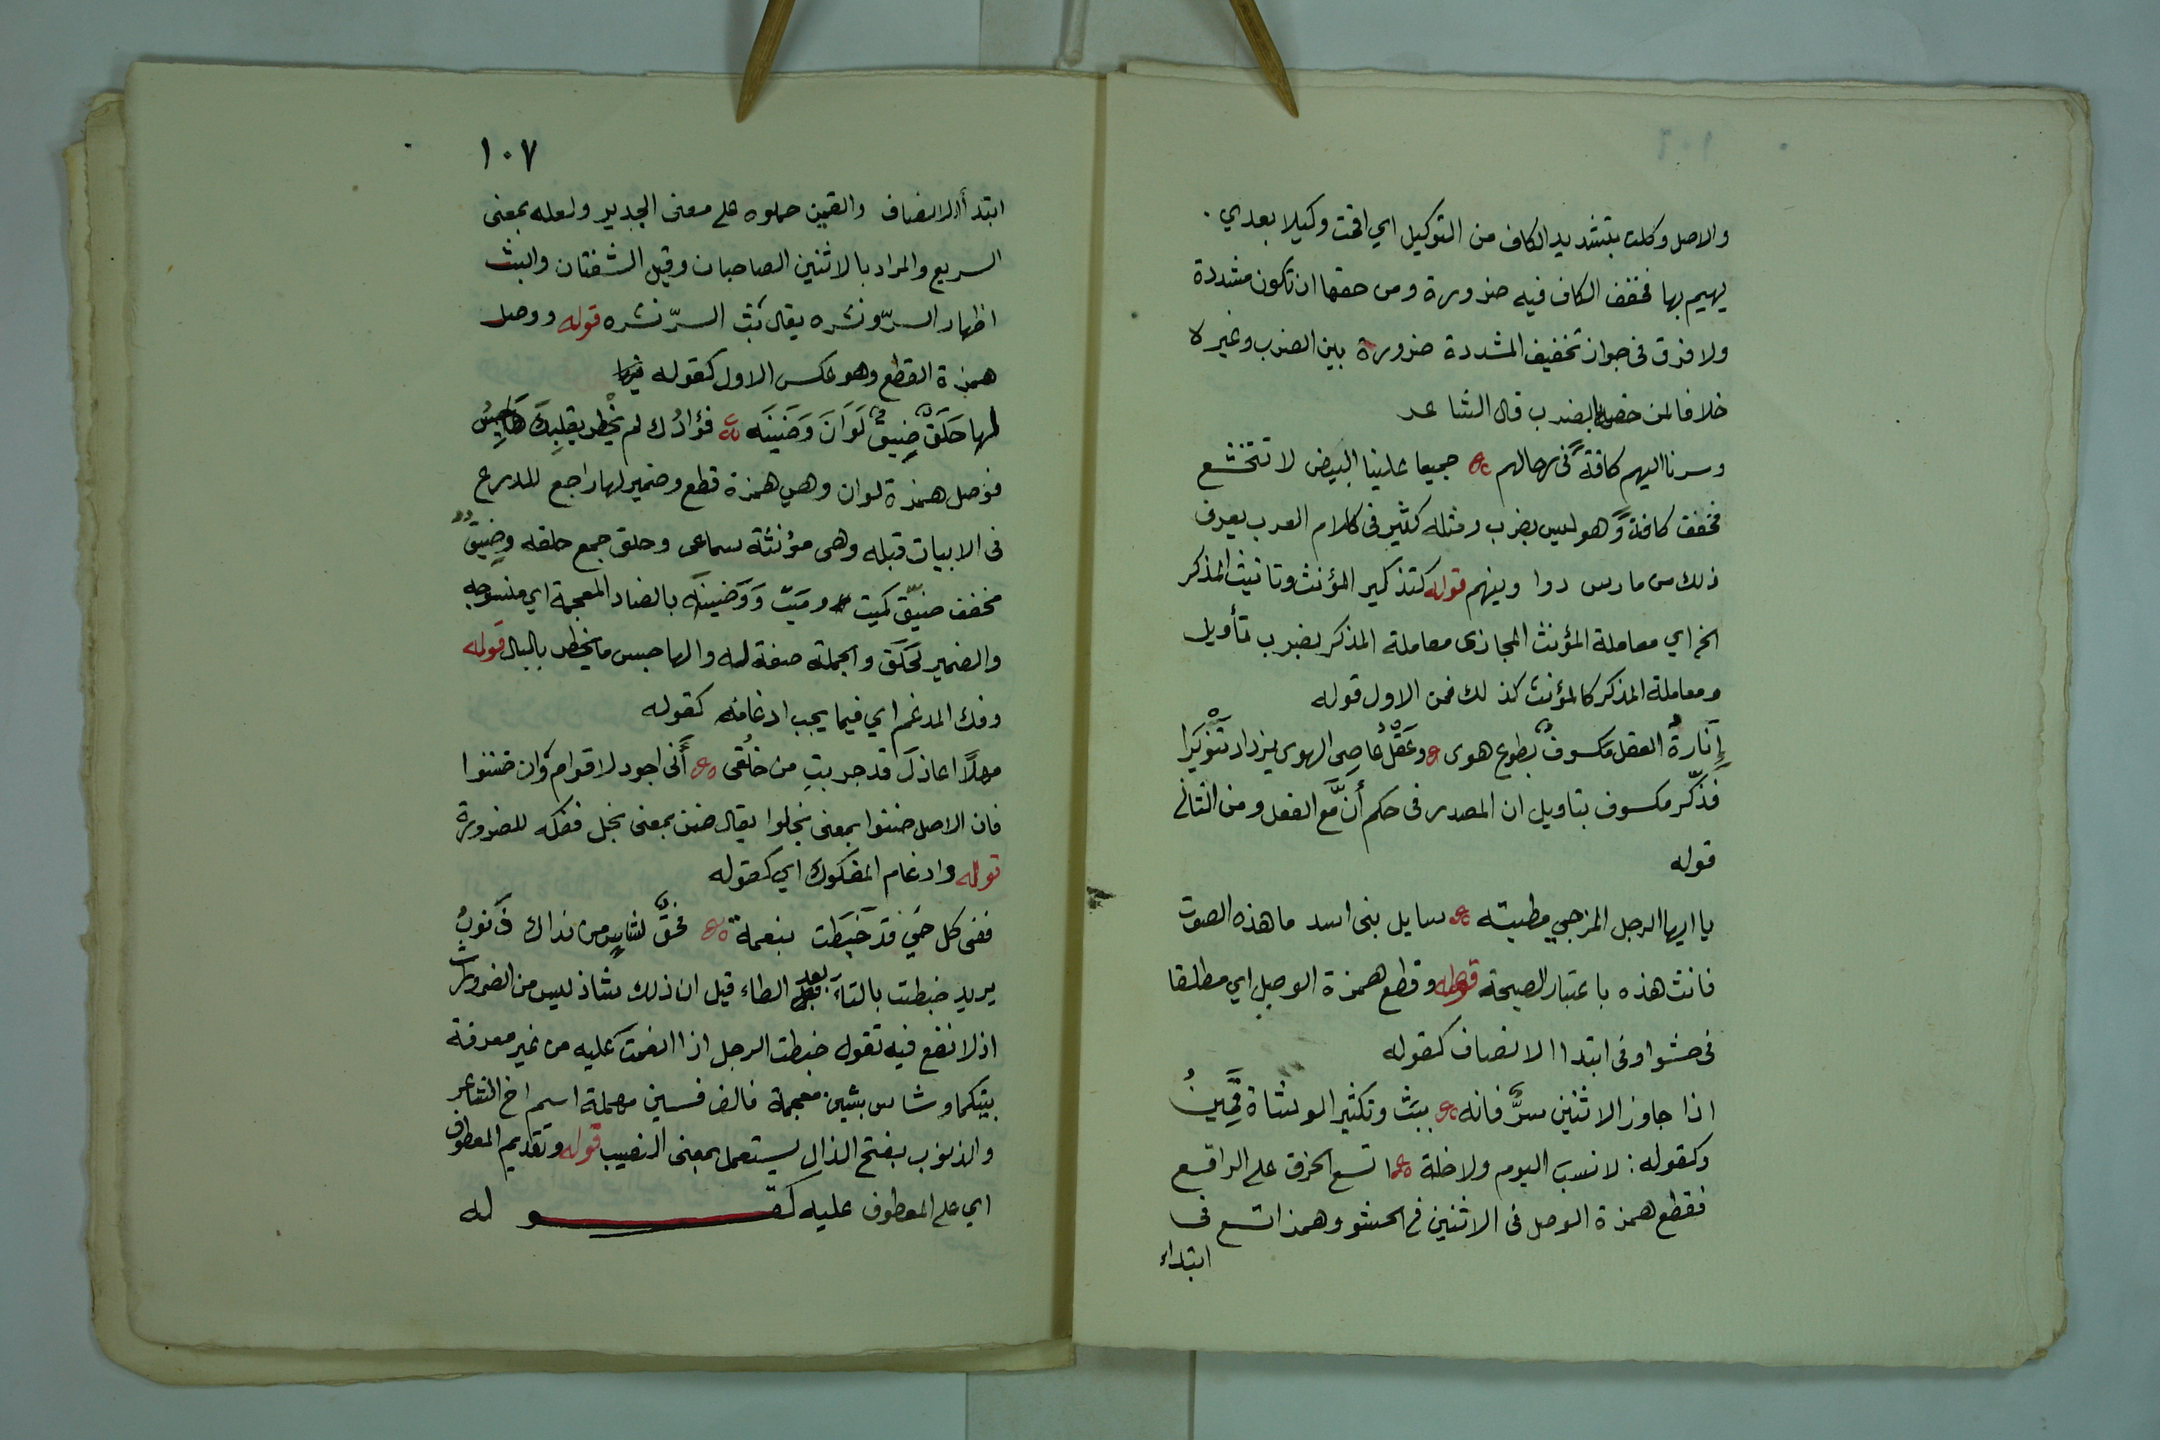 والاصل وكلت بتشديد الكاف من التوكيل اي اقمت وكيلا بعدي .
يهيم بها فخفف الكاف فيه ضرورة ومن حقها ان تكون مشددة
ولا فرق فى جواز تخفيف المشددة ضرورة بين الضرب وغير لا
خلافا لمن خصه بالضرب قال الشاعر
وسرنا اليهم كافةً فى رحالهم جميعا علينا البيض لا تتخشع
فخفف كافة وهو ليس بضرب ومثله كثير فى كلام العرب يعرف
ذلك من مارس دوا وينهم قوله كتذكير المؤنث وتانيث المذكر
الخ اي معاملة المؤنث المجازى معاملة المذكر بضرب تأويل
ومعاملة المذكر كالمؤنث كذلك فمن الاول قوله
إنارةُ العقل مكسوفٌ بطوع هوى وعَقْلُ عاصِى الهوى يزداد تَنْوِيَرا
فذكّر مكسوف بتاويل ان المصدر فى حكم أن مَّع الفعل ومن الثانى
قوله
يا ايها الرجل المزجي مطيته سايل بنى اسد ما هذه الصوت
فانث هذه باعتبار الصيحة قوله وقطع همزة الوصل اي مطلقا
فى حشو او فى ابتدا الانصاف كقوله
اذا جاوز الاثنين سرٌّ فانه ببَثّ وتكثير الوشاة قَمِينُ
وكقوله : لا نسب اليوم ولا خلة اتسع الخرق على الراقع
فقطع همزة الوصل فى الاثنين فى الحشو وهمز اتسع فى
ابتداء
١٠٧
ابتدأ الانصاف والقمين حملوه على معنى الجدير ولعله بمعنى
السريع والمراد بالاثنين الصاحبان وقيل الشفتان والبث
اظهار السرّ ونشره يقال بَثّ السرّ نشره قوله ووصل
همزة القطع وهو عكس الاول كقوله
لها حَلَقٌ ضِيقٌ لَوَانَ وَضَينَه فؤادُك لم يَخْطر بقلبِكَ هَاجِسُ
فوصل همزة لوان وهي همزة قطع وضمير لها راجع للدرع
فى الابيات قبله وهى مؤنثة سماعى وحلق جمع حلقه وضِيقٌ
مخفف ضيّق كميت وميّت وَوَضينَه بالضاد المعجمة اي منسوجه
والضمير لحَلَق والجملة صفة له والهاجس ما يخطر بالبال قوله
وفك المدغم اي فيما يجب ادغامه كقوله
مهلًا اعاذلَ قد جربتِ من خلُقى أنّى اجود لاقوام وان ضننوا
فان الاصل ضنوا بمعنى بخلوا يقال ضنن بمعنى بخل ففكه للضرورة
قوله وادغام المفكوك اي كقوله
ففى كل حَي قد خَبَطت بنعمة فحُقَّ لشاسٍ من نداك ذَنوبُ
يريد خبطت بالتاء بعد الطاء قيل ان ذلك شاذ ليس من الضرورات
اذ لا نقع فيه تقول خبطت الرجل اذا انعمت عليه من غير معرفة
بيتكما وشاس بشين معجمة فالف فسين مهملة اسم اخ الشاعر
والذنوب بفتح الذال يستعمل بمعنى النصيب قوله وتقديم المعطوف
اي على المعطوف عليه كقــــــو لـه